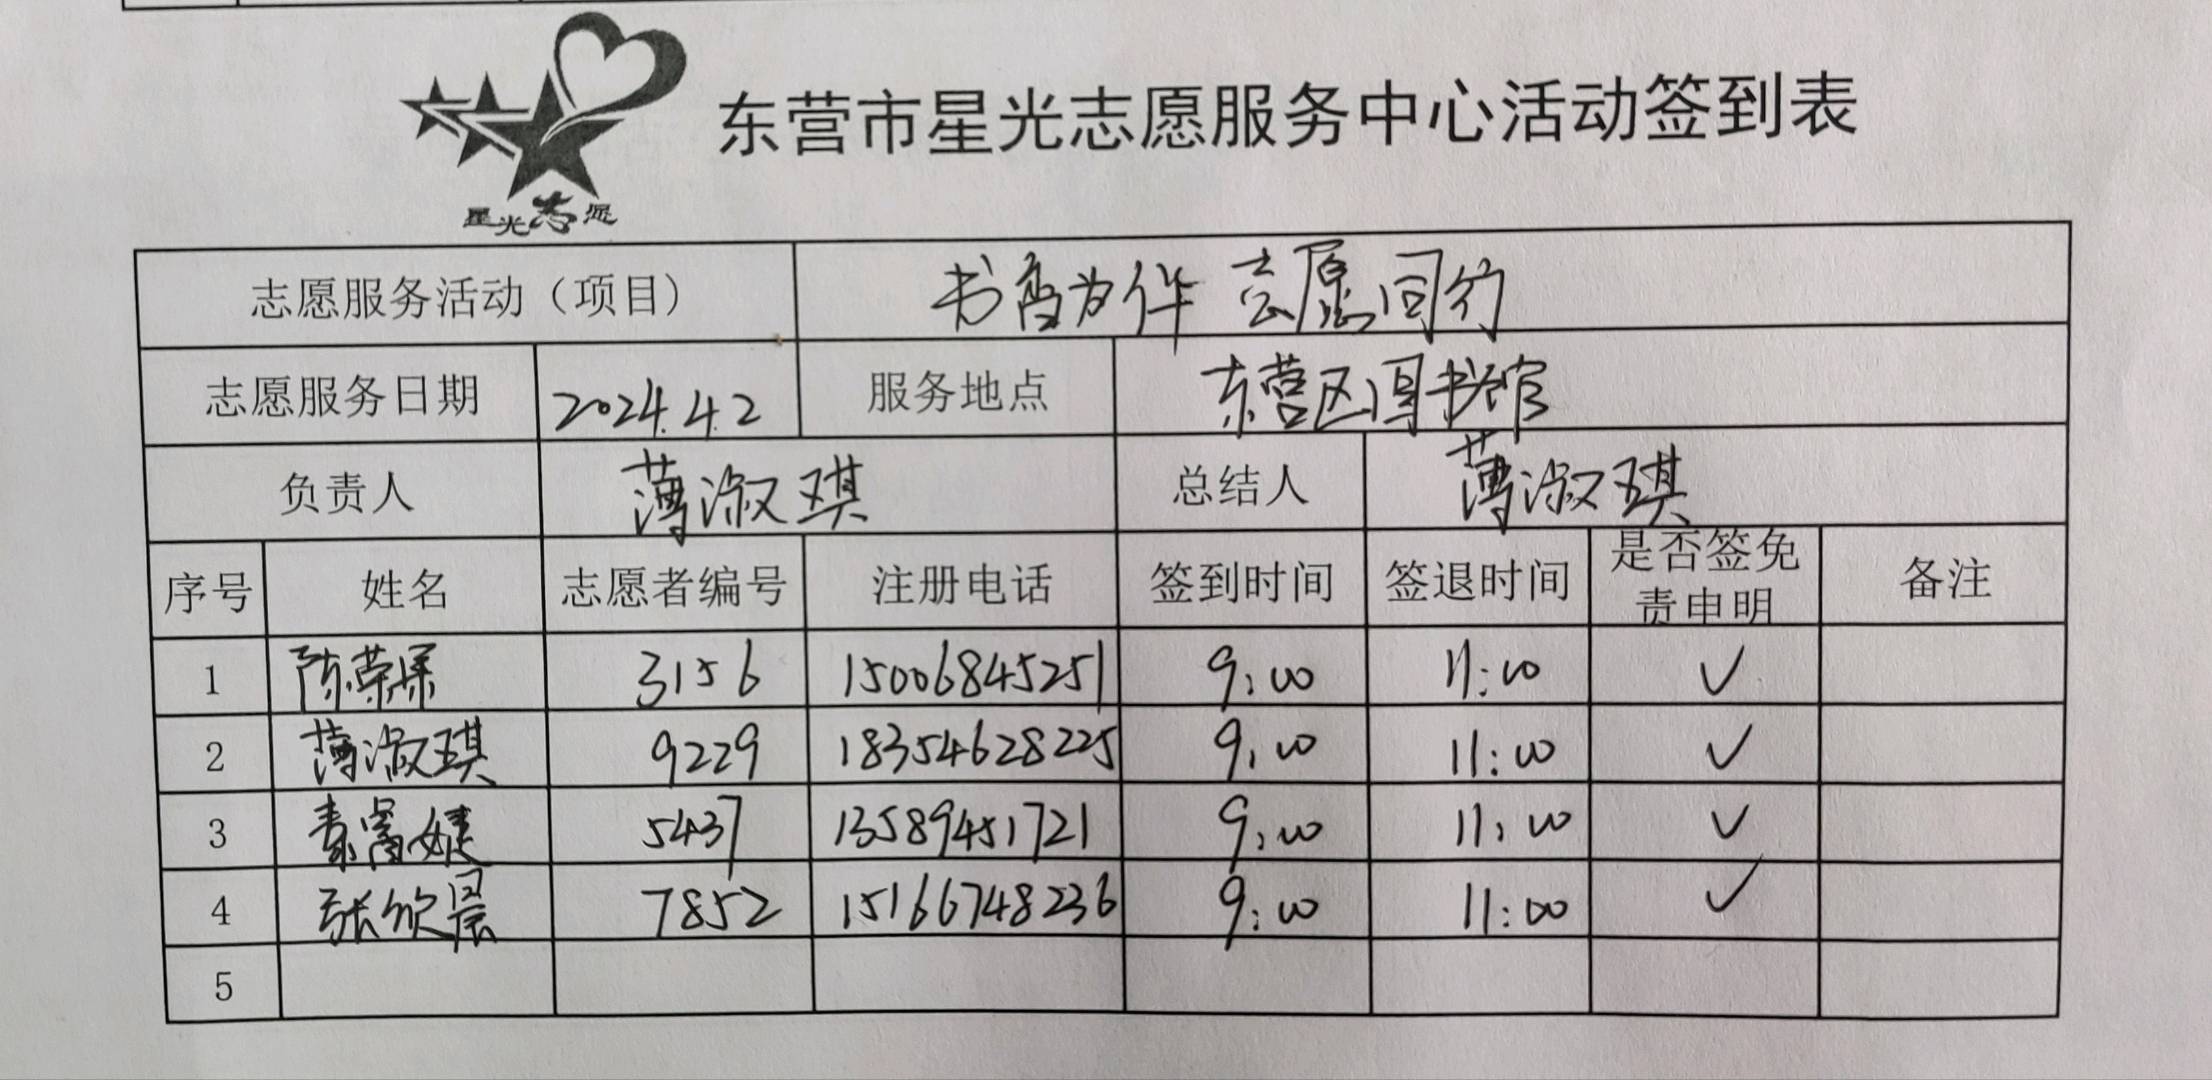 东营市星光志愿服务中心活动签到表
星光志愿
志愿服务活动（项目） 书香为伴 志愿同行
志愿服务日期 2024.4.2 服务地点 东营区图书馆
负责人 薄淑琪 总结人 薄淑琪
序号 姓名 志愿者编号 注册电话 签到时间 签退时间 是否签免责申明 备注
1 陈荣 3156 15006845251 9:00 11:00 ✓
2 薄淑琪 9229 18354628225 9:00 11:00 ✓
3 5437 13589451721 9:00 11:00 ✓
4 张欣晨 7852 15166748236 9:00 11:00 ✓
5